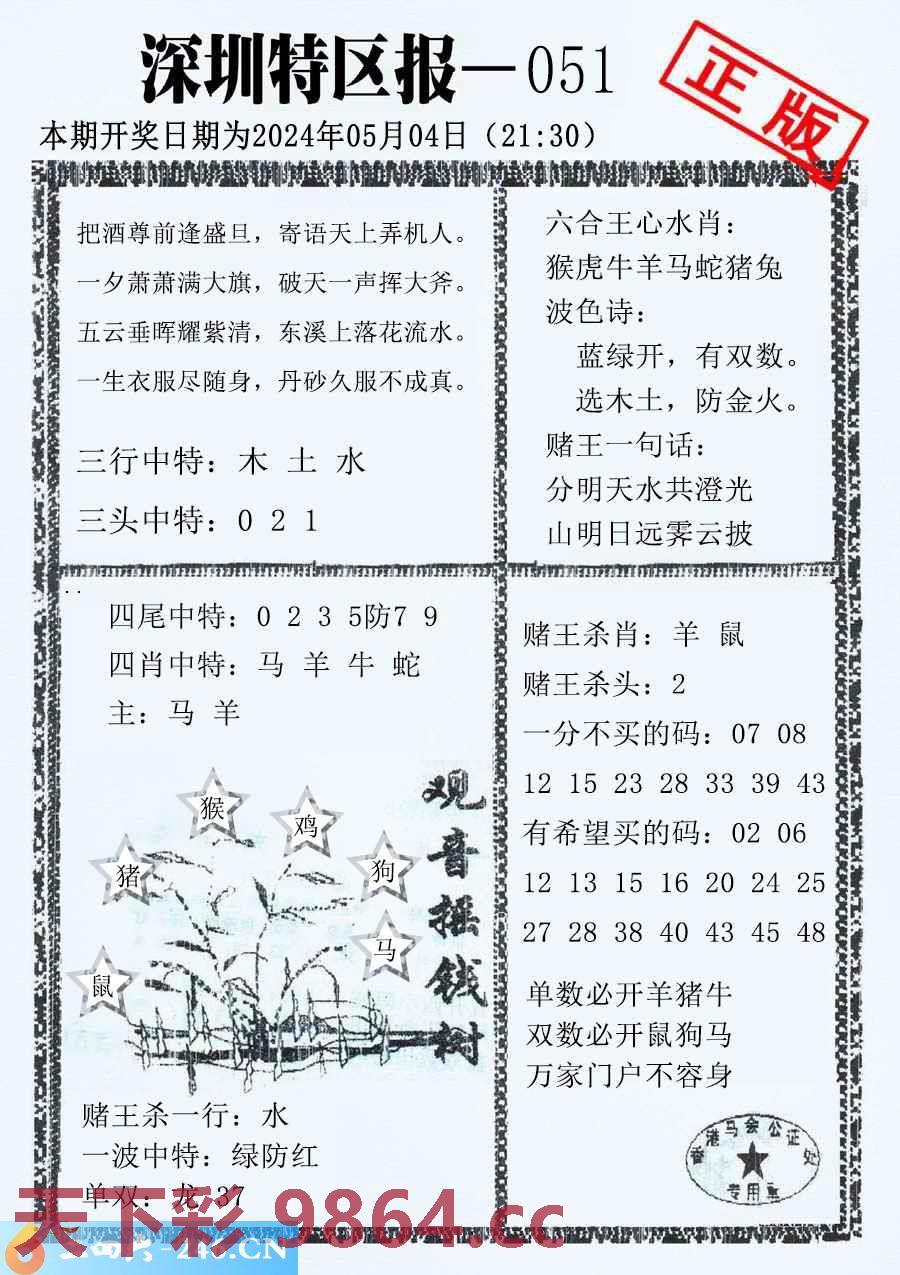 深圳特区报—051
正版
本期开奖日期为2024年05月04日（21:30）
把酒尊前逢盛旦，寄语天上弄机人。
一夕萧萧满大旗，破天一声挥大斧。
五云垂晖耀紫清，东溪上落花流水。
一生衣服尽随身，丹砂久服不成真。
三行中特：木 土 水
三头中特：0 2 1
六合王心水肖：
猴虎牛羊马蛇猪兔
波色诗：
蓝绿开，有双数。
选木土，防金火。
赌王一句话：
分明天水共澄光
山明日远霁云披
四尾中特：0 2 3 5防7 9
四肖中特：马 羊 牛 蛇
主：马 羊
猴
鸡
猪
狗
马
鼠
观音摇钱树
赌王杀一行：水
一波中特：绿防红
单双：龙 37
赌王杀肖：羊 鼠
赌王杀头：2
一分不买的码：07 08
12 15 23 28 33 39 43
有希望买的码：02 06
12 13 15 16 20 24 25
27 28 38 40 43 45 48
单数必开羊猪牛
双数必开鼠狗马
万家门户不容身
香港马会公证处
专用章
天下彩 9864.cc
-246.CN